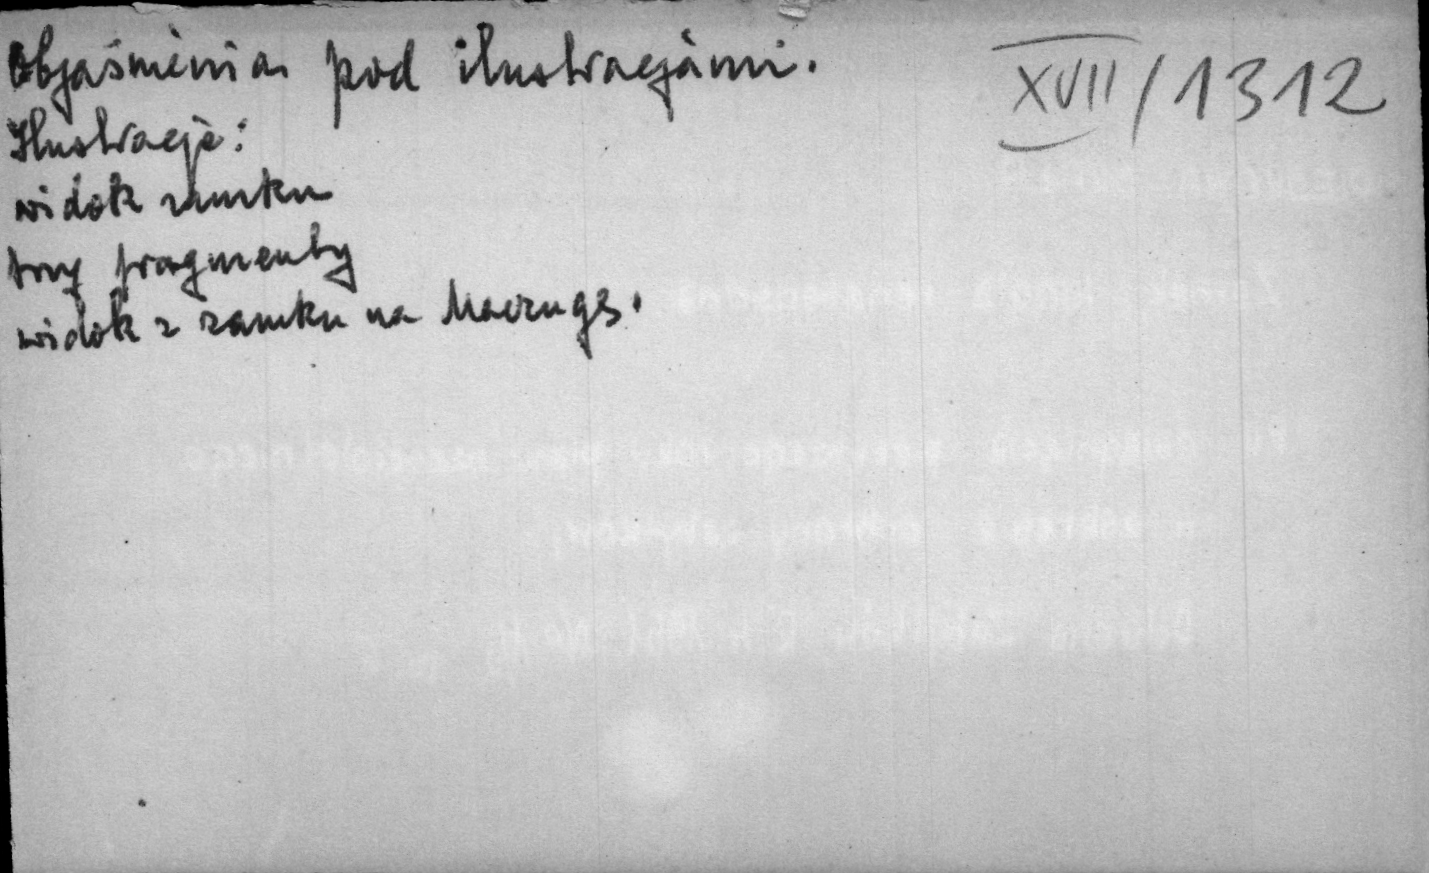 Objaśnienia pod ilustracjami.
XVII/1312
Ilustracje:
widok zamku
trzy fragmenty
widok z zamku na Maczugę.